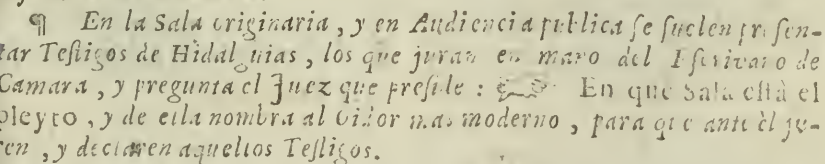 ¶ En la Sala originaria, y en Audiencia publica ſe ſuelen preſen-
tar Teſtigos de Hidalguias, los que juran en mano del Eſcrivano de
Camara, y pregunta el Juez que preſide: En que Sala eſtà el
pleyto, y de ella nombra al Oidor mas moderno, para que ante èl ju-
ren, y declaren aquellos Teſtigos.